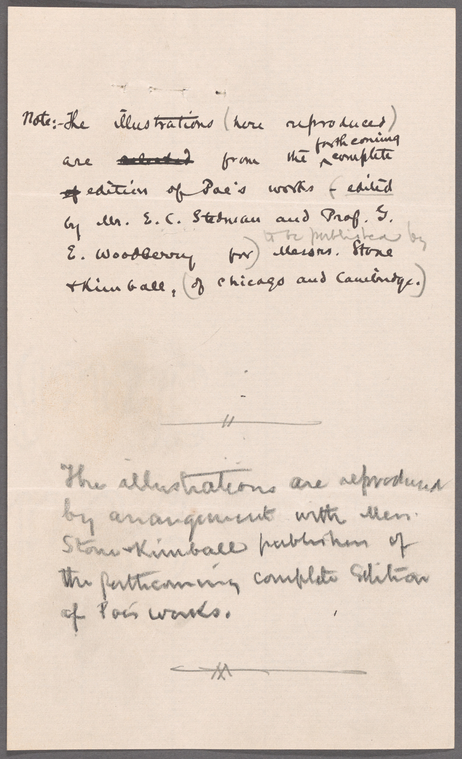 Note:- The illustrations (here reproduced)
forthcoming
are selected from the complete
of edition of Poe's works (edited
by Mr. E. C. Stedman and Prof. G.
to be published by
E. Woodberry for) Messrs. Stone
+ Kimball, (of Chicago and Cambridge.)
The illustrations are reproduced
by arrangement with Messr.
Stone + Kimball publishers of
the forthcoming complete Edition
of Poe's works.